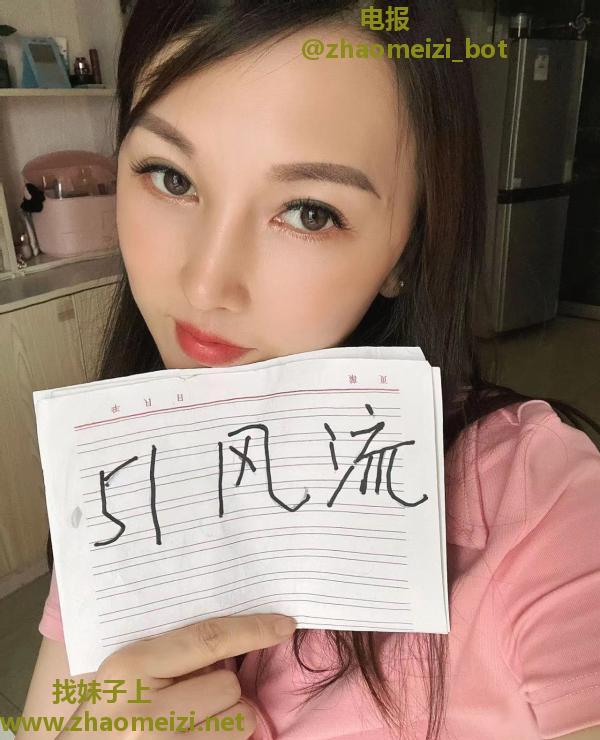 电报
@zhaomeizi_bot
51风流
找妹子上
www.zhaomeizi.net